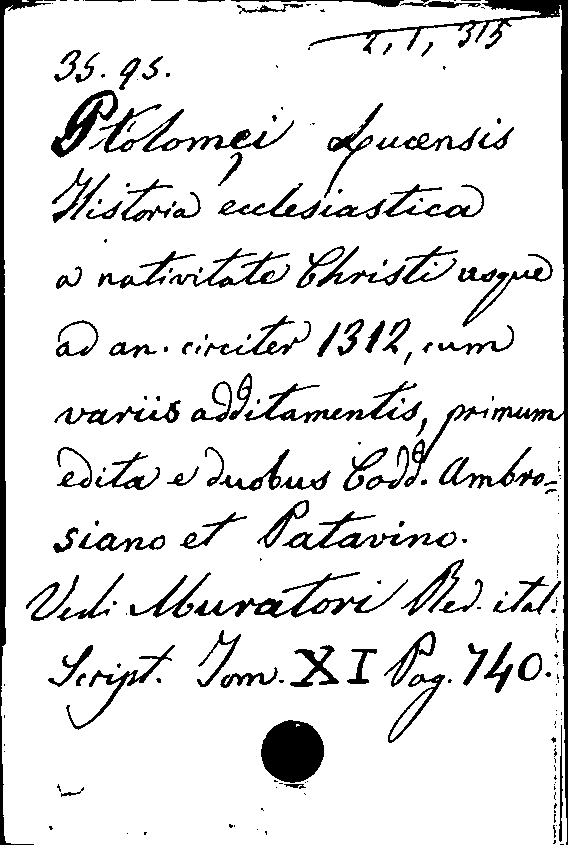 2, 1, 315
35. 95.
Ptolomęi Lucensis
Historia ecclesiastica
a nativitate Christi usque
ad an. circiter 1312, cum
variis additamentis, primum
edita e duobus Codd. Ambro-
siano et Patavino.
Vedi Muratori Red. ital.
Script. Tom. XI Pag. 740.